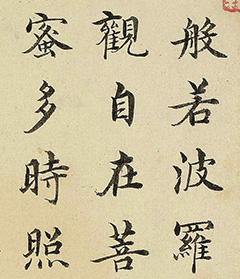 般若波羅
觀自在菩
蜜多時照